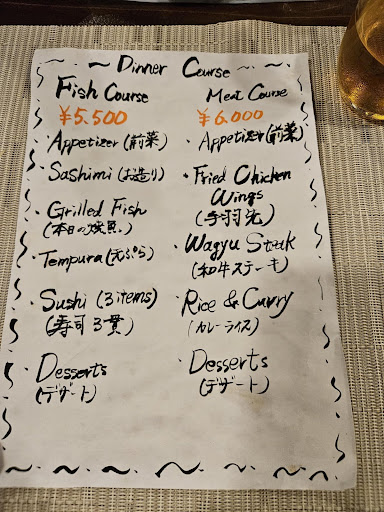 ~ Dinner Course ~
Fish Course
¥5.500
・Appetizer (前菜)
・Sashimi (お造り)
・Grilled Fish
(本日の焼魚)
・Tempura (天ぷら)
・Sushi (3 items)
(寿司3貫)
・Desserts
(デザート)
Meat Course
¥6.000
・Appetizer (前菜)
・Fried Chicken
Wings
(手羽先)
・Wagyu Steak
(和牛ステーキ)
・Rice & Curry
(カレーライス)
・Desserts
(デザート)